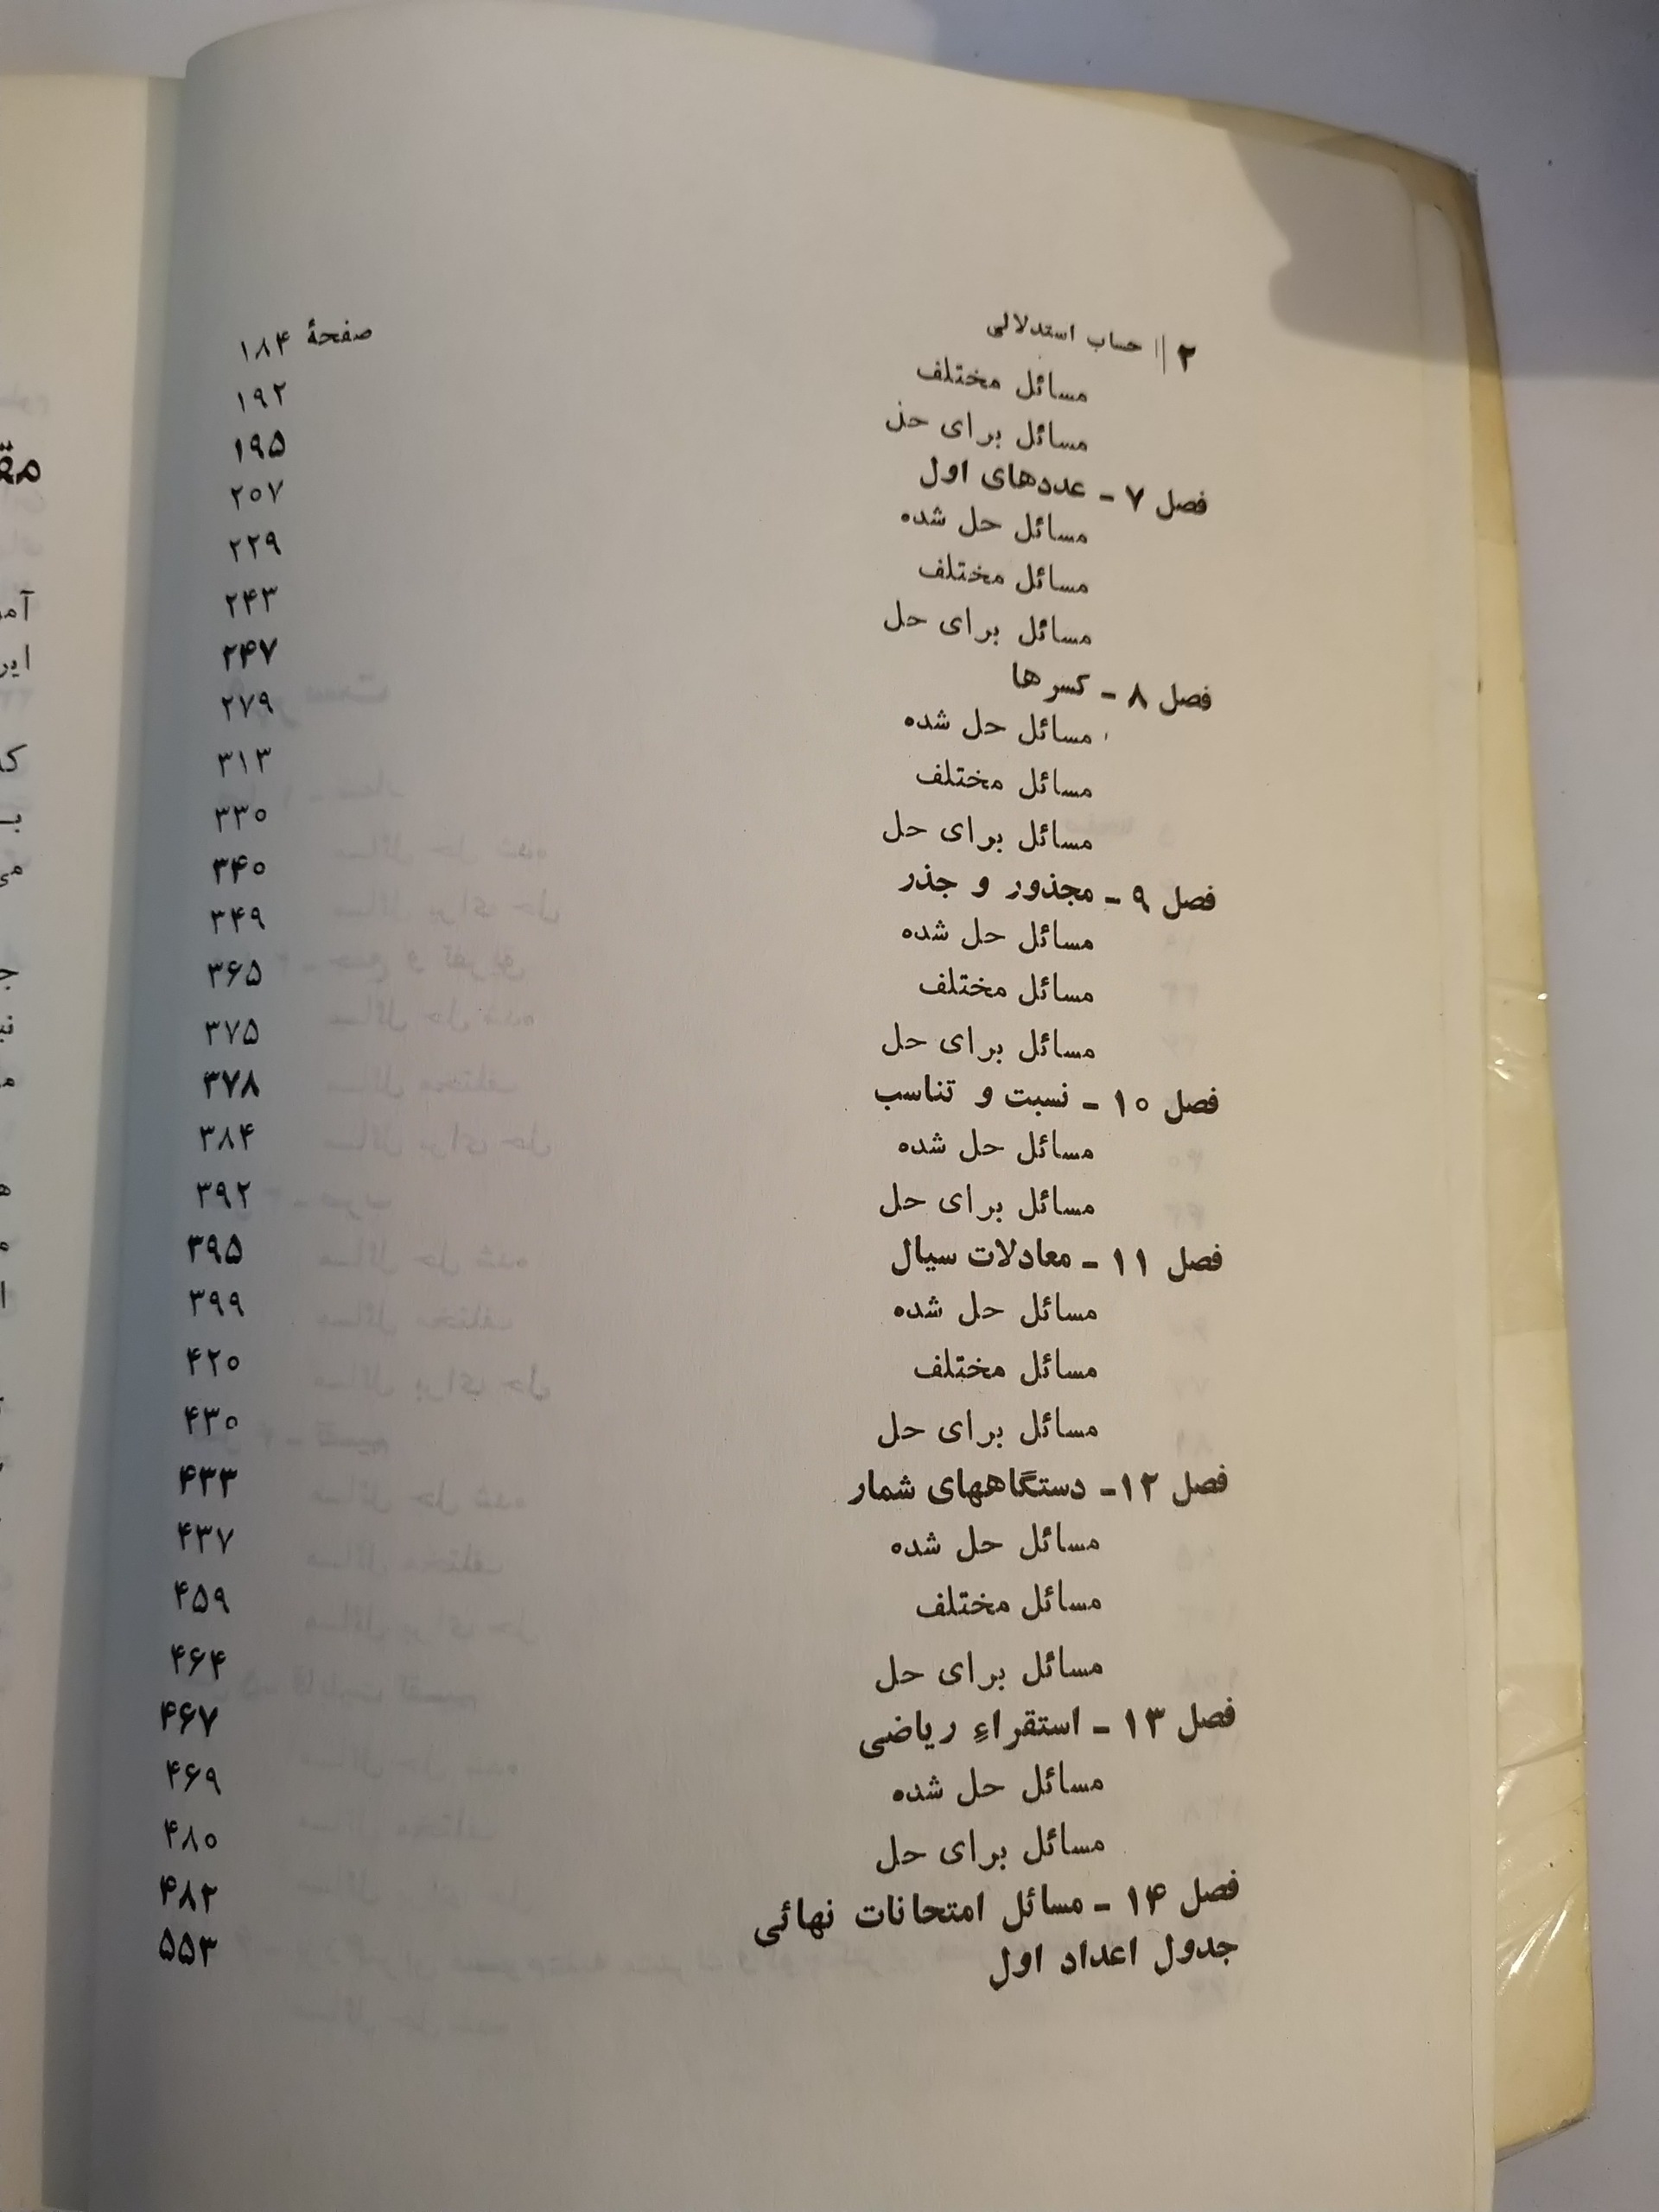 ۲ || حساب استدلالی
مسائل مختلف صفحهٔ ۱۸۴
مسائل برای حل ۱۹۲
فصل ۷ ـ عددهای اول ۱۹۵
مسائل حل شده ۲۰۷
مسائل مختلف ۲۲۹
مسائل برای حل ۲۴۳
فصل ۸ ـ کسرها ۲۴۷
مسائل حل شده ۲۷۹
مسائل مختلف ۳۱۳
مسائل برای حل ۳۳۰
فصل ۹ ـ مجذور و جذر ۳۴۰
مسائل حل شده ۳۴۹
مسائل مختلف ۳۶۵
مسائل برای حل ۳۷۵
فصل ۱۰ ـ نسبت و تناسب ۳۷۸
مسائل حل شده ۳۸۴
مسائل برای حل ۳۹۲
فصل ۱۱ ـ معادلات سیال ۳۹۵
مسائل حل شده ۳۹۹
مسائل مختلف ۴۲۰
مسائل برای حل ۴۳۰
فصل ۱۲ـ دستگاههای شمار ۴۳۳
مسائل حل شده ۴۳۷
مسائل مختلف ۴۵۹
مسائل برای حل ۴۶۴
فصل ۱۳ ـ استقراءِ ریاضی ۴۶۷
مسائل حل شده ۴۶۹
مسائل برای حل ۴۸۰
فصل ۱۴ ـ مسائل امتحانات نهائی ۴۸۲
جدول اعداد اول ۵۵۳